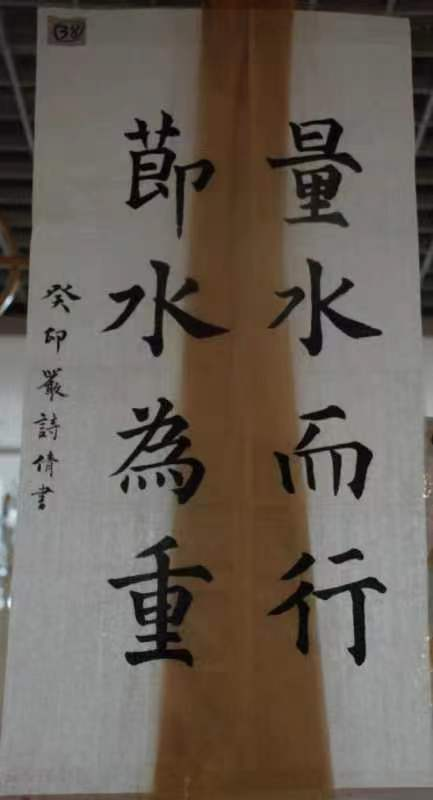 量水而行
節水為重
癸卯嚴詩倩書
138